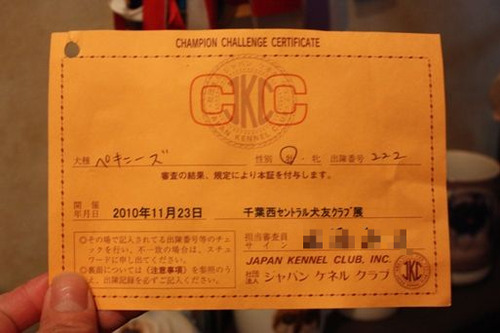 CHAMPION CHALLENGE CERTIFICATE
CKC
JKC
JAPAN KENNEL CLUB
犬種 ペキニーズ 性別 牡・牝 出陳番号 222
審査の結果、規定により本証を付与します。
開催年月日 2010年11月23日 千葉西セントラル犬友クラブ展
◎その場で記入されてる出陳番号等のチェ
ックを行い、不一致の場合は、スチュ
ワードに申し出てください。
◎裏面については(注意事項)を参照のう
え、出陳記録を必ずご記入ください。
担当審査員
サイン
JAPAN KENNEL CLUB, INC.
社団法人 ジャパン ケネル クラブ
JKC